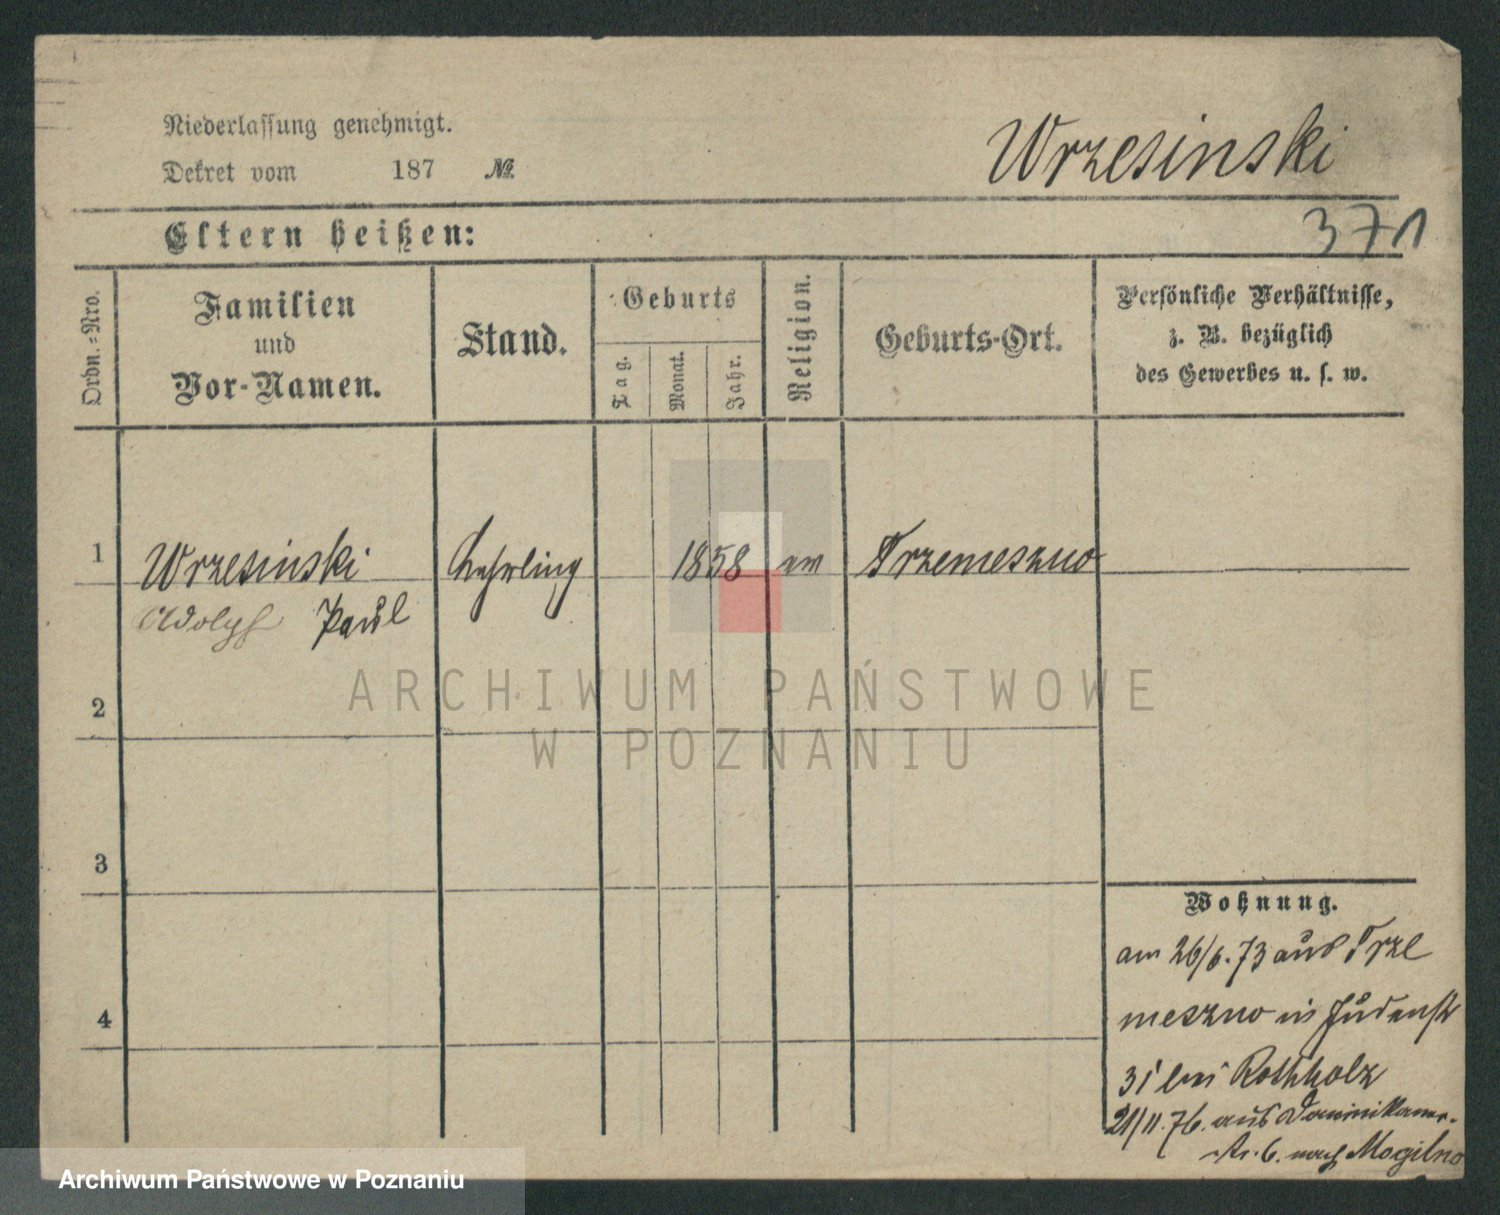 Niederlassung genehmigt.
Dekret vom 187 №
Wrzesinski
Eltern heißen:
371
Ordn.=Nro.
Familien
und
Vor-Namen.
Stand.
Geburts
Tag.
Monat.
Jahr.
Religion.
Geburts-Ort.
Persönliche Verhältnisse,
z. B. bezüglich
des Gewerbes u. s. w.
1 Wrzesinski Lehrling 1858 ev Trzemeszno
Adolph Paul
2
3
4
Wohnung.
am 26/6.73 aus Trze
meszno in Judenst
31 bei Rothholz
21/11.76. aus Dominikaner-
Str. 6. nach Mogilno
ARCHIWUM PAŃSTWOWE
W POZNANIU
Archiwum Państwowe w Poznaniu